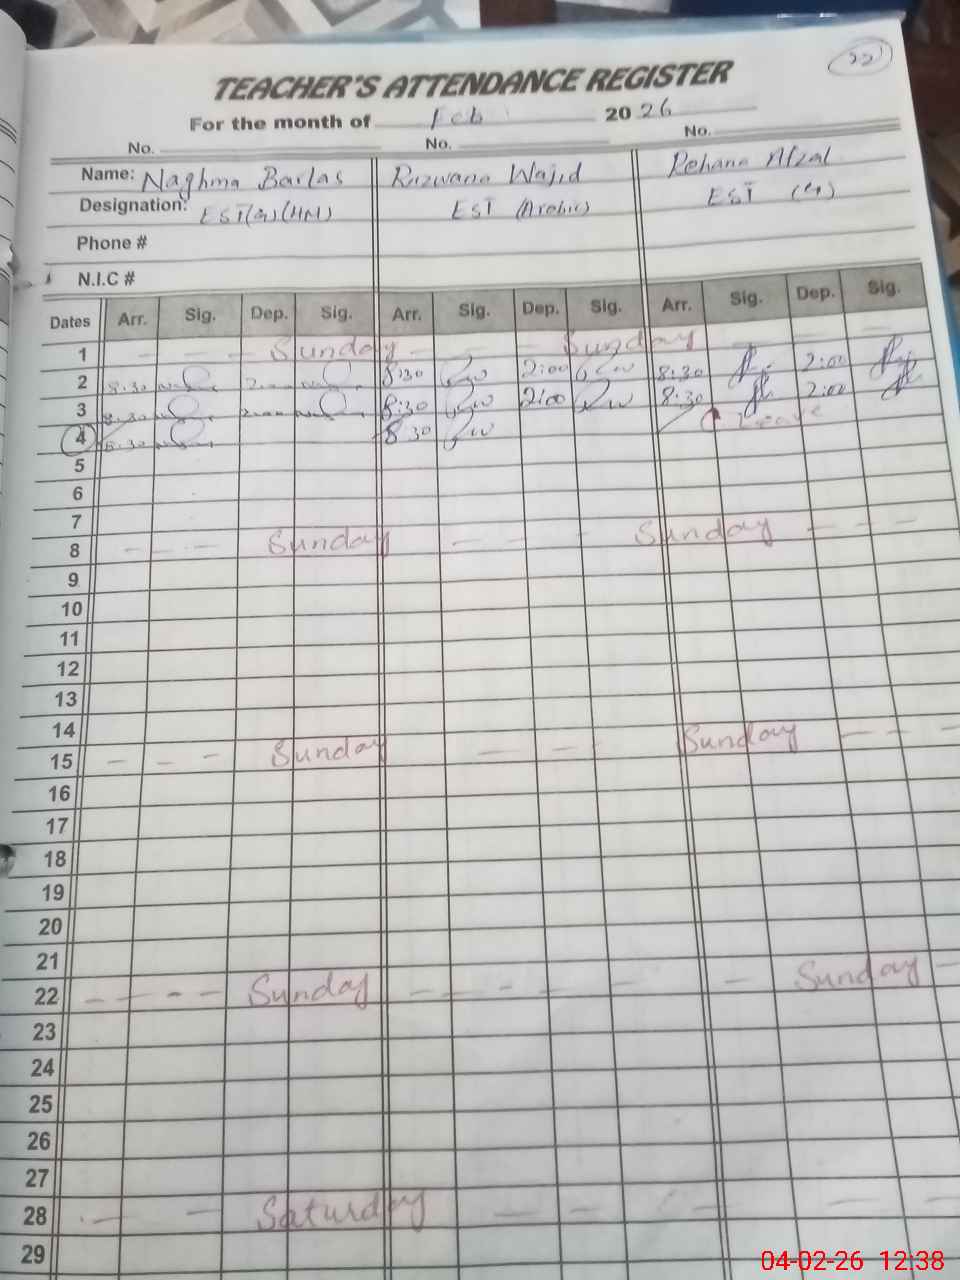 22
TEACHER'S ATTENDANCE REGISTER
For the month of Feb 2026
No. No. No.
Name: Naghma Barlas Rizwana Wajid Rehana Afzal
Designation: EST(G)(HM) EST (Arabic) EST (G)
Phone #
N.I.C #
Dates Arr. Sig. Dep. Sig. Arr. Sig. Dep. Sig. Arr. Sig. Dep. Sig.
1 - - - Sunday - - - Sunday - - -
2 8:30 2:00 8:30 2:00 8:30 2:00
3 8:30 2:00 8:30 2:00 8:30 2:00
4 8:30 8:30 Leave
5
6
7
8 - - - Sunday - - - Sunday - - -
9
10
11
12
13
14
15 - - - Sunday - - Sunday - - -
16
17
18
19
20
21
22 - - - - Sunday - - - - - - Sunday -
23
24
25
26
27
28 - - Saturday - - - - - - -
29
04-02-26 12:38